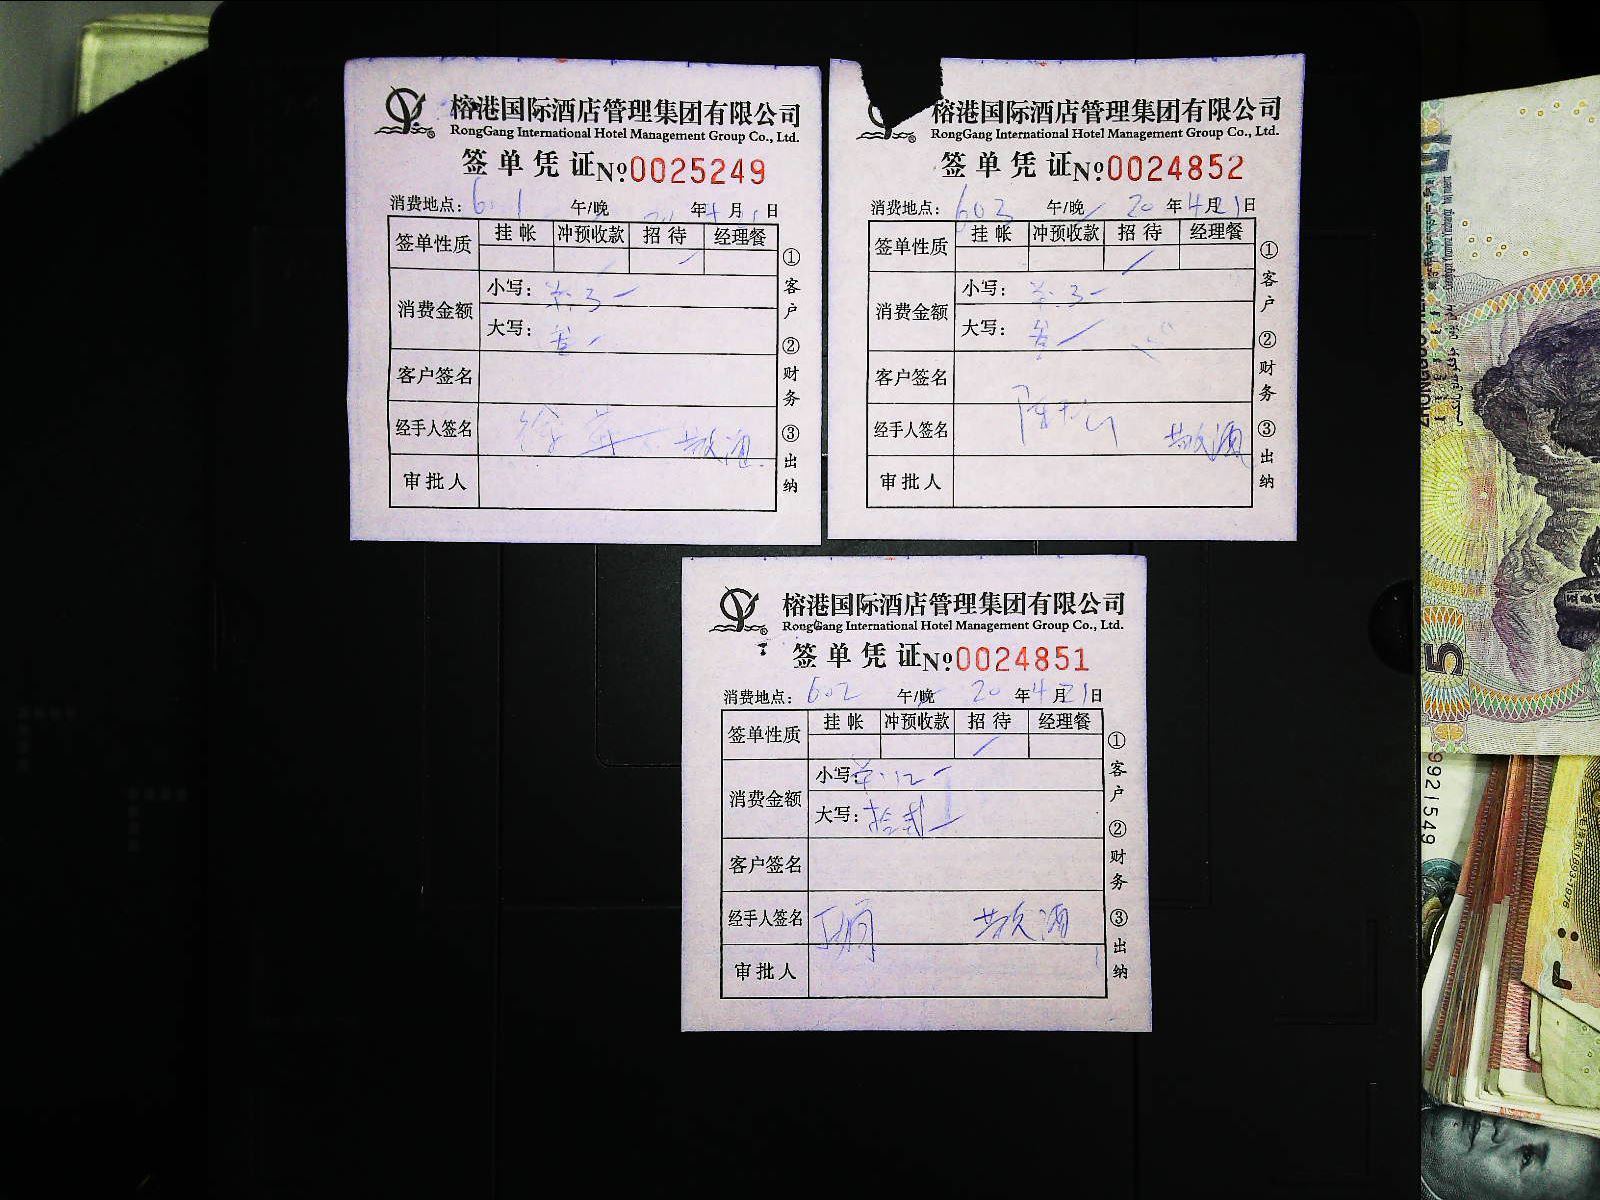 榕港国际酒店管理集团有限公司
RongGang International Hotel Management Group Co., Ltd.
签单凭证 №0025249
消费地点: 601 午/晚 年 4月 日
签单性质 挂帐 冲预收款 招待 经理餐
消费金额 小写: 3
大写:
客户签名
经手人签名 敬酒
审批人
①客户 ②财务 ③出纳
榕港国际酒店管理集团有限公司
RongGang International Hotel Management Group Co., Ltd.
签单凭证 №0024852
消费地点: 603 午/晚 20年4月21日
签单性质 挂帐 冲预收款 招待 经理餐
消费金额 小写: 3
大写:
客户签名
经手人签名 敬酒
审批人
①客户 ②财务 ③出纳
榕港国际酒店管理集团有限公司
RongGang International Hotel Management Group Co., Ltd.
签单凭证 №0024851
消费地点: 602 午/晚 20年4月21日
签单性质 挂帐 冲预收款 招待 经理餐
消费金额 小写: 12
大写: 拾贰
客户签名
经手人签名 敬酒
审批人
①客户 ②财务 ③出纳
5
9921549